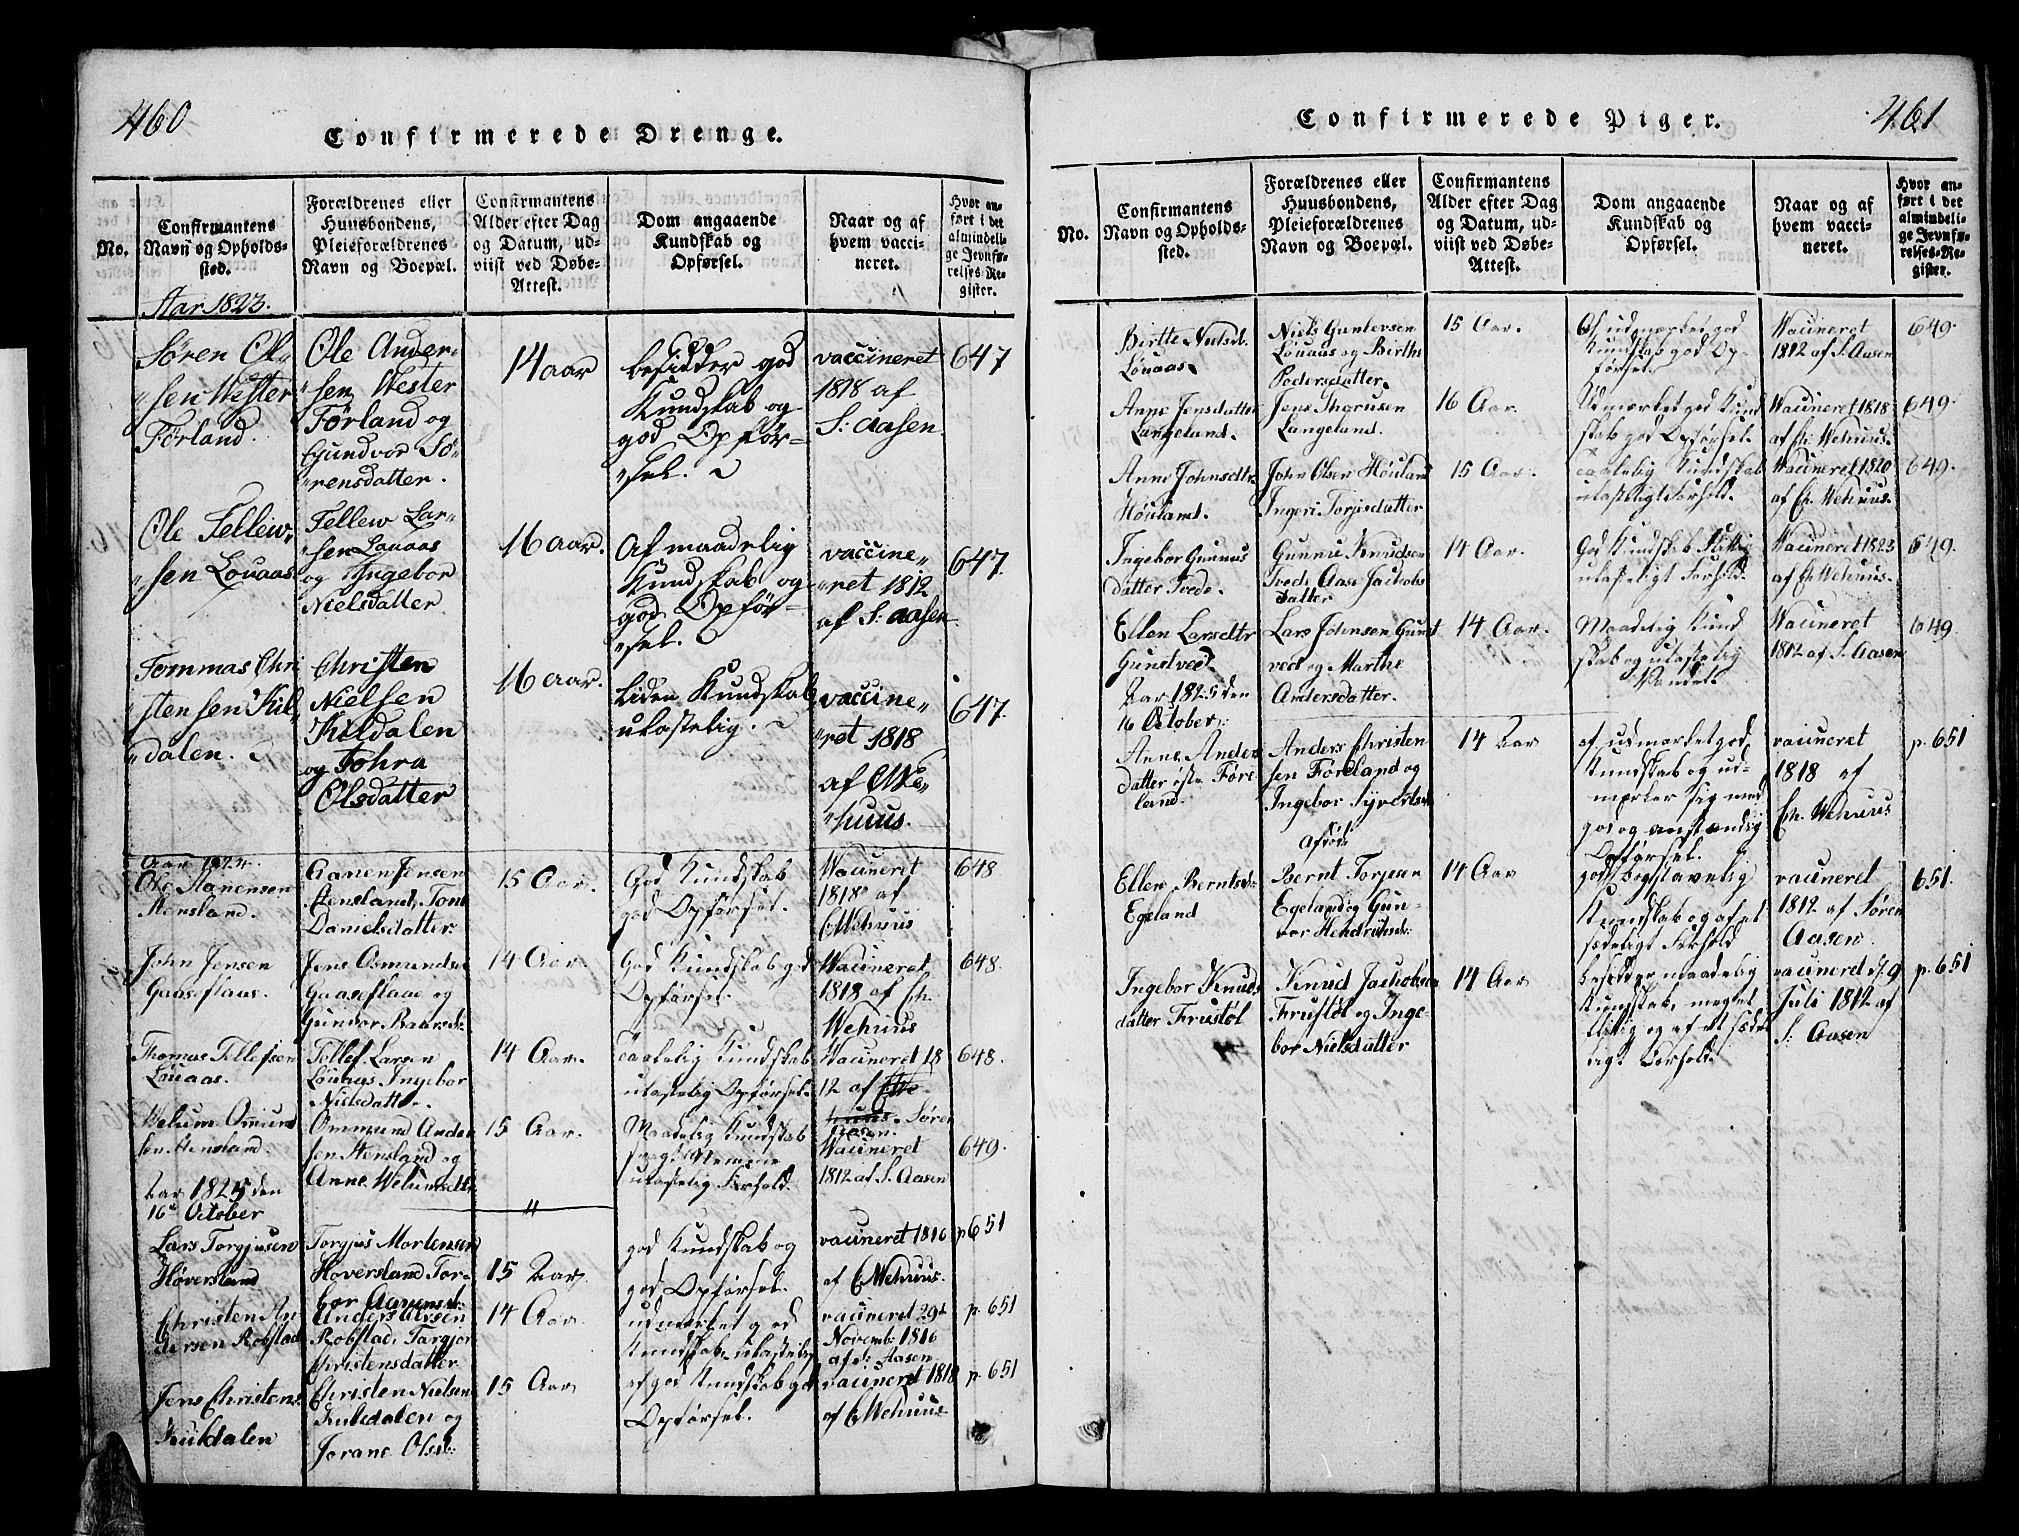 460
Confirmerede Drenge.
No.
Confirmantens
Navn og Opholds-
sted.
Forældrenes eller
Huusbondens,
Pleieforældrenes
Navn og Boepæl.
Confirmantens
Alder efter Dag
og Datum, ud-
viist ved Døbe-
Attest.
Dom angaaende
Kundskab og
Opførsel.
Naar og af
hvem vacci-
neret.
Hvor an-
ført i det
almindeli-
ge Jevnfø-
relses-Re-
gister.
Aar 1823.
Sören Ol„
„sen Wester
Förland.
Ole Ander„
„sen Wester
Förland og
Gundvor Sö„
„rensdatter.
14 aar
besidder god
Kundskab og
god Opför„
„sel.
vaccineret
1818 af
S: Aasen
647
Ole Tellew„
„sen Lovaas
Tellew Lar„
„sen Lauaas
og Ingebor
Nielsdatter
16 aar.
Af maadelig
Kundskab og
god Opför„
„sel.
vaccine„
„ret 1812
af S: Aasen
647
Tommas Chri
stensen Kil„
„dalen.
Christen
Nielsen
Kildalen
og Johra
Olsdatter
16 aar.
Liden Kundskab
ulastelig.
vaccine„
„ret 1818
af C We„
„huus.
647.
Aar 1824.
Ole Aanensen
Stensland.
Aanen Jensen
Stensland, Tone
Danielsdatter.
15 Aar.
God Kundskab
god Opførsel.
Vaccineret
1818 af
C Wehuus
648
John Jensen
Gaaseflaae.
Jens Osmundsen
Gaaseflaae og
Gunvor Baarsd:
14 Aar.
God Kundskab god
Opførsel.
Vaccineret
1818 af Ch.
Wehuus
648.
Thomas Tellefsen
Lòuaas.
Tellef Larsen
Lòuaas, Ingebor
Nielsdatter.
14 Aar.
Taalelig Kundskab
ulastelig Opførsel.
Vaccineret 18
12 af
Søren
Aasen.
648.
Welum Omund
sen Stensland.
Ommund Ander
sen Stensland og
Anne Welumsdtr
15 Aar.
Maadelig Kundskab
svagt Nemme
ulastelig Forhold.
Vaccineret
1812 af S. Aasen
649.
Aar 1825 den
16de October
Lars Torgjusen
Høversland
Torgjus Mortensen
Høversland Tor-
bor Aanensd:
15 Aar.
god Kundskab og
god Opførsel.
vaccineret 1816
af C Wehuus.
p 651
Christen An
dersen Robstad
Anders Olsen
Robstad, Targjer
Christensdatter
14 Aar.
udmærket god
Kundskab, ulastelig
vaccineret 29de
Novemb: 1816
af S: Aasen
p. 651
Jens Christens:
Kuldalen
Christen Nielsen
Kuldalen og
Jorane Olsd:
15 Aar
af god Kundskab god
Opførsel.
vaccineret 1818
af C Wehuus
p. 651
461
Confirmerede Piger.
No.
Confirmantens
Navn og Opholds-
sted.
Forældrenes eller
Huusbondens,
Pleieforældrenes
Navn og Boepæl.
Confirmantens
Alder efter Dag
og Datum, ud-
viist ved Døbe-
Attest.
Dom angaaende
Kundskab og
Opførsel.
Naar og af
hvem vacci-
neret.
Hvor an-
ført i det
almindeli-
ge Jevnfø-
relses-Re-
gister.
Birtte Nielsd.
Lòuaas.
Niels Guntevsen
Lòuaas og Birthe
Pedersdatter.
15 Aar.
Af udmærket god
Kundskab god Op-
førsel.
Vaccineret
1812 af S. Aasen
649.
Anne Jensdatter
Langeland.
Jens Thorusen
Langeland.
16 Aar.
Udmærket god Kund
skab god Opførsel.
Vaccineret 1818
af Ch. Wehuus.
649.
Anne Johnsdtr
Høuland.
John Olsen Høuland
Ingeri Torjisdatter
15 Aar.
Taalelig Kundskab
ulasteligt Forhold.
Vaccineret 1820
af Ch. Wehuus.
649.
Ingebor Gunnus
datter Tvede.
Gunnu Knudsen
Tvede, Aase Jacobs
datter
14 Aar.
God Kundskab
ulasteligt Forhold.
Vaccineret 1823
af Ch Wehuus.
649.
Ellen Larsdtr
Gunstved.
Lars Johnsen Gunst
ved og Marthe
Andersdatter.
14 Aar.
Maadelig Kund
skab og ulastelig
Vandel.
Vaccineret
1812 af S. Aasen
649.
Aar 1825 den
16 October:
Anne Anders
datter øste Føre
land.
Anders Christen
sen Foreland og
Ingebor Syvertsd:
14 Aar
af udmærket god
Kundskab og ud-
mærker sig med
god og anstændig
Opførsel.
vaccineret
1818 af
Ch. Wehuus
p. 651
Ellen Berntsd:
Egeland
Bernt Torjesen
Egeland og Gun-
vor Hendriksd:
14 Aar
god Bogstavelig
Kundskab og af et
sædeligt Forhold
vaccineret
1812 af Søren
Aasen.
651.
Ingebor Knuds
datter Frustøl
Knud Jachobsen
Frustøl og Inge-
bor Nielsdatter
14 Aar
besidder maadelig
Kundskab, meget
flittig og af et sæde
ligt Forhold.
vaccineret d. 9
Juli 1812 af
S: Aasen
p. 651